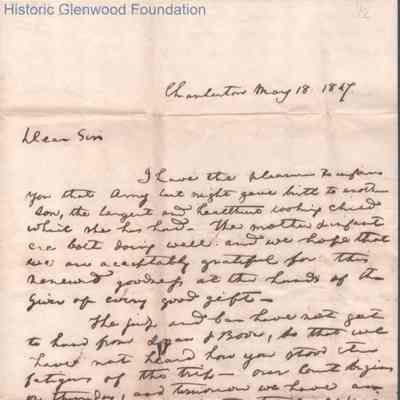 Historic Glenwood Foundation
1/2
Charleston May 18 1847.
Dear Sir
I have the pleasure to inform
you that Amy last night gave birth to another
son, the largest and healthiest looking child
which she has had. The mother & infant
are both doing well. and we hope that
we are acceptably grateful for this
renewed goodness at the hands of the
Giver of every good gift —
The and have not yet
to hand from & Book, so that we
have not heard how you stood the
fatigues of the trip — our Court begins
on thursday, and tomorrow we have an